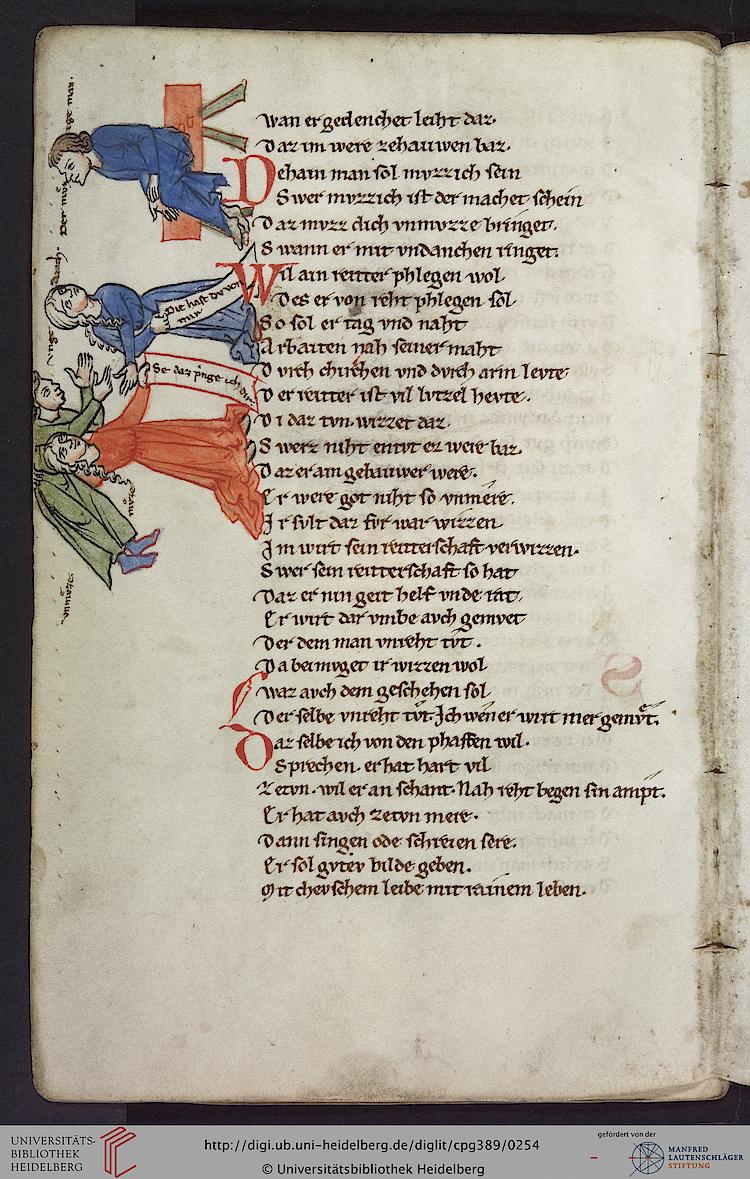 wan er gedenchet leiht daz.
Daz im were zehauwen baz.
Dehain man sol mvzzich sein
Swer mvzzich ist der machet schein
Daz mvzz dich vnmvzze bringet.
Swann er mit vndanchen ringet.
Wil ain reitter phlegen wol
Des er von reht phlegen sol
So sol er tag vnd naht
Arbaiten nah seiner maht
Dvrch chirchen vnd dvrch arm levte
Der reitter ist vil lvtzel hevte.
Di daz tvn. wizzet daz.
Swerz niht entvt ez were baz.
Daz er ain gebauwer were.
Er were got niht so vnmere.
Ir svlt daz fvr war wizzen
Im wirt sein reitterschaft verwizzen.
Swer sein reitterschaft so hat
Daz er nin geit helf vnde rat.
Er wirt dar vmbe avch gemvet
Der dem man vnreht tvt.
Da bei mvget ir wizzen wol
waz avch dem geschehen sol
Der selbe vnreht tvt. Ich wen er wirt mer gemvt.
Daz selbe ich von den phaffen wil.
Sprechen. er hat hart vil
Zetvn. wil er an schant. Nah reht begen sin ampt.
Er hat avch zetvn mere.
Dann singen ode schreien sere.
Er sol gvtev bilde geben.
Mit chevschem leibe mit rainem leben.
Die hast dv von mir
Se daz pringe ich dir
vnmvze
S
UNIVERSITÄTS-
BIBLIOTHEK
HEIDELBERG
http://digi.ub.uni-heidelberg.de/diglit/cpg389/0254
© Universitätsbibliothek Heidelberg
gefördert von der
MANFRED
LAUTENSCHLÄGER
STIFTUNG